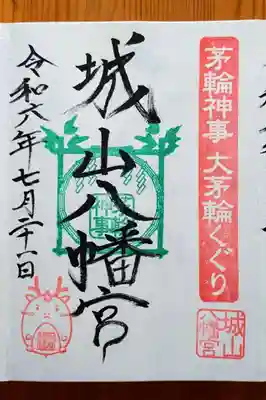 茅輪神事 大茅輪くぐり
城山八幡宮
城山八幡宮
令和六年七月二十一日